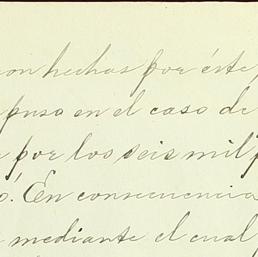 son hechas por éste
puso en el caso de
por los seis mil
ó. En consecuencia
mediante el cual